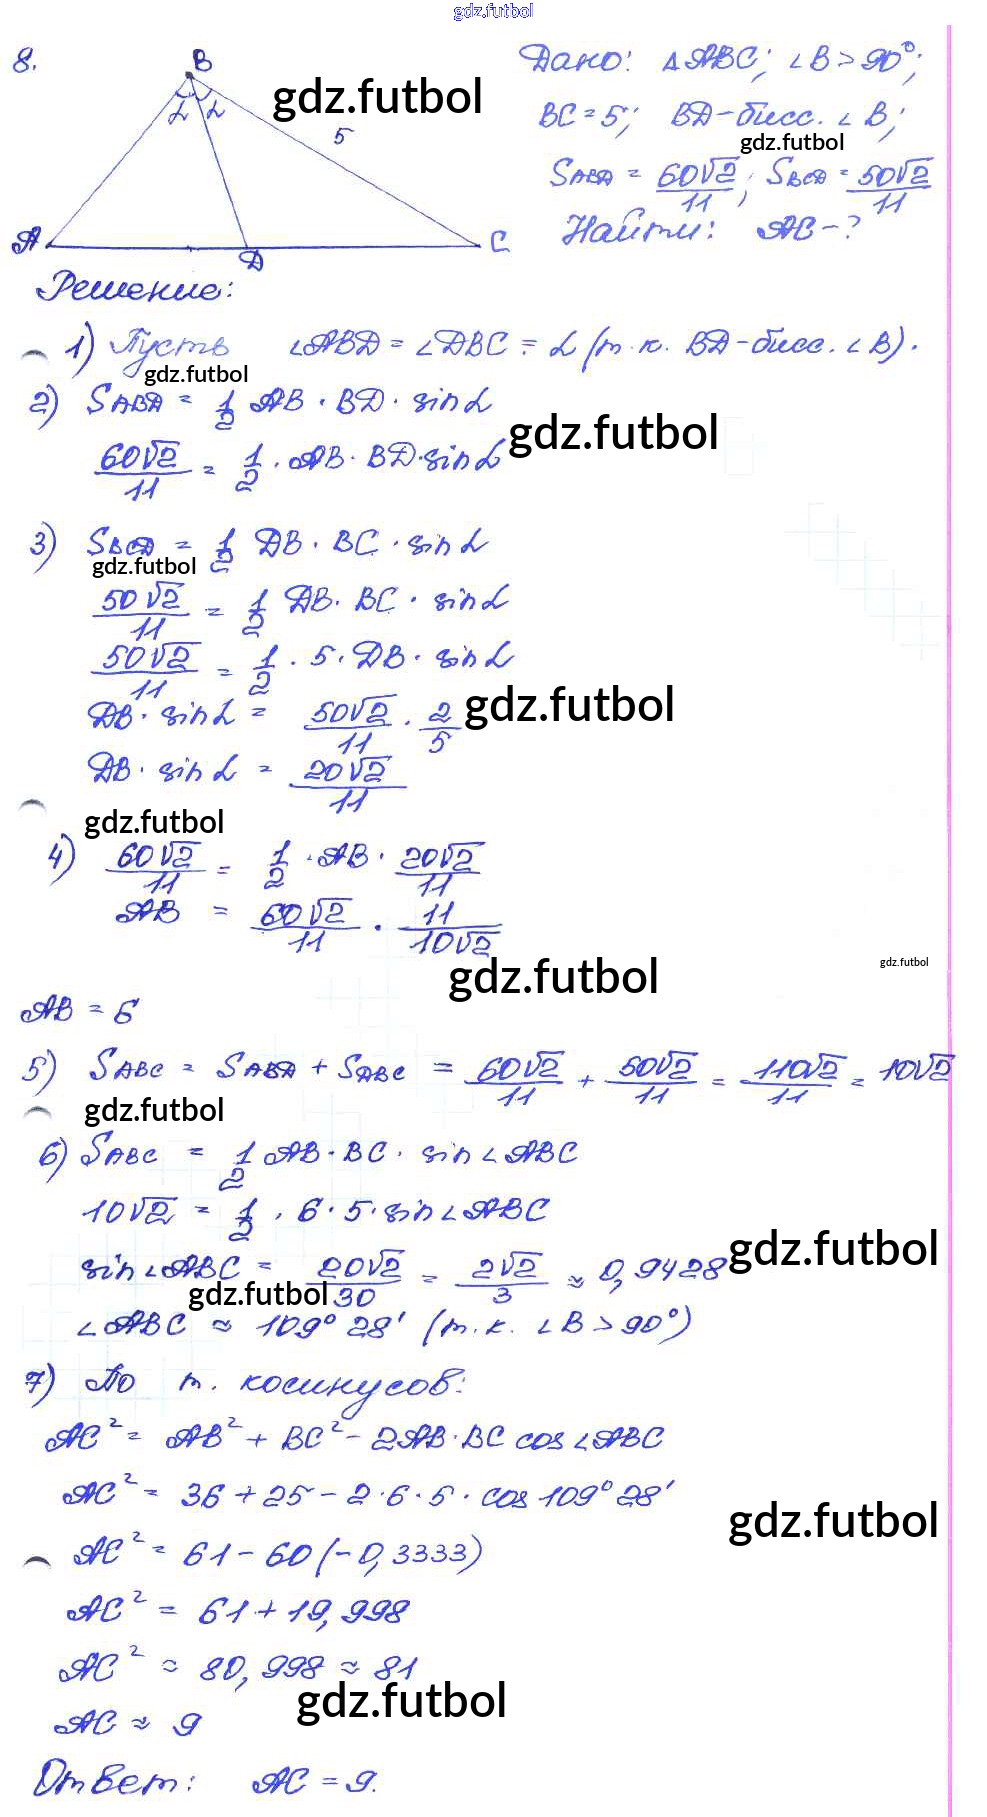 gdz.futbol
8. B Дано: △ABC; ∠B > 90°;
gdz.futbol
α α 5 BC = 5; BD - бисс. ∠B;
gdz.futbol
S_ABD = 60√2/11; S_BCD = 50√2/11
A D C Найти: AC - ?
Решение:
1) Пусть ∠ABD = ∠DBC = α (т.к. BD - бисс. ∠B).
gdz.futbol
2) S_ABD = 1/2 AB · BD · sin α
gdz.futbol
60√2/11 = 1/2 · AB · BD · sin α
3) S_BCD = 1/2 DB · BC · sin α
gdz.futbol
50√2/11 = 1/2 DB · BC · sin α
50√2/11 = 1/2 · 5 · DB · sin α
DB · sin α = 50√2/11 · 2/5
gdz.futbol
DB · sin α = 20√2/11
gdz.futbol
4) 60√2/11 = 1/2 · AB · 20√2/11
AB = 60√2/11 · 11/10√2
gdz.futbol
gdz.futbol
AB = 6
5) S_ABC = S_ABD + S_DBC = 60√2/11 + 50√2/11 = 110√2/11 = 10√2
gdz.futbol
6) S_ABC = 1/2 AB · BC · sin ∠ABC
10√2 = 1/2 · 6 · 5 · sin ∠ABC
gdz.futbol
sin ∠ABC = 20√2/30 = 2√2/3 ≈ 0,9428
gdz.futbol
∠ABC ≈ 109° 28' (т.к. ∠B > 90°)
7) По т. косинусов:
AC² = AB² + BC² - 2AB · BC cos ∠ABC
AC² = 36 + 25 - 2 · 6 · 5 · cos 109° 28'
gdz.futbol
AC² = 61 - 60 (-0,3333)
AC² = 61 + 19,998
AC² ≈ 80,998 ≈ 81
gdz.futbol
AC ≈ 9
Ответ: AC = 9.